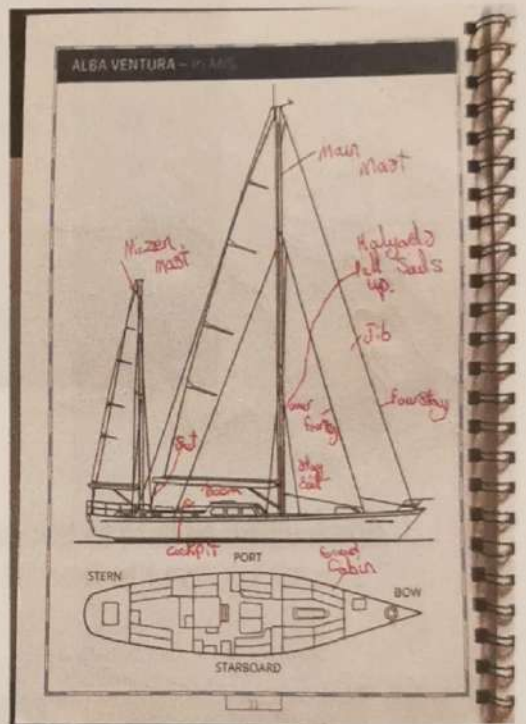 ALBA VENTURA – PLANS
Main
Mast
Mizen
Mast
Halyards
Pull Sails
up.
Jib
Fourstay
Stay
Sail
Boom
Cockpit
PORT
Cabin
STERN
BOW
STARBOARD